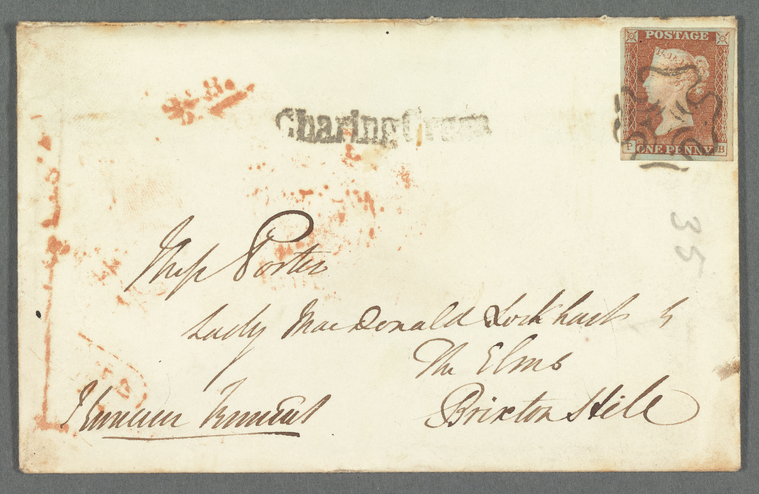 POSTAGE
ONE PENNY
P B
Charing Cross
35
Miss Porter
Lady MacDonald Lockhart's
The Elms
Brixton Hill